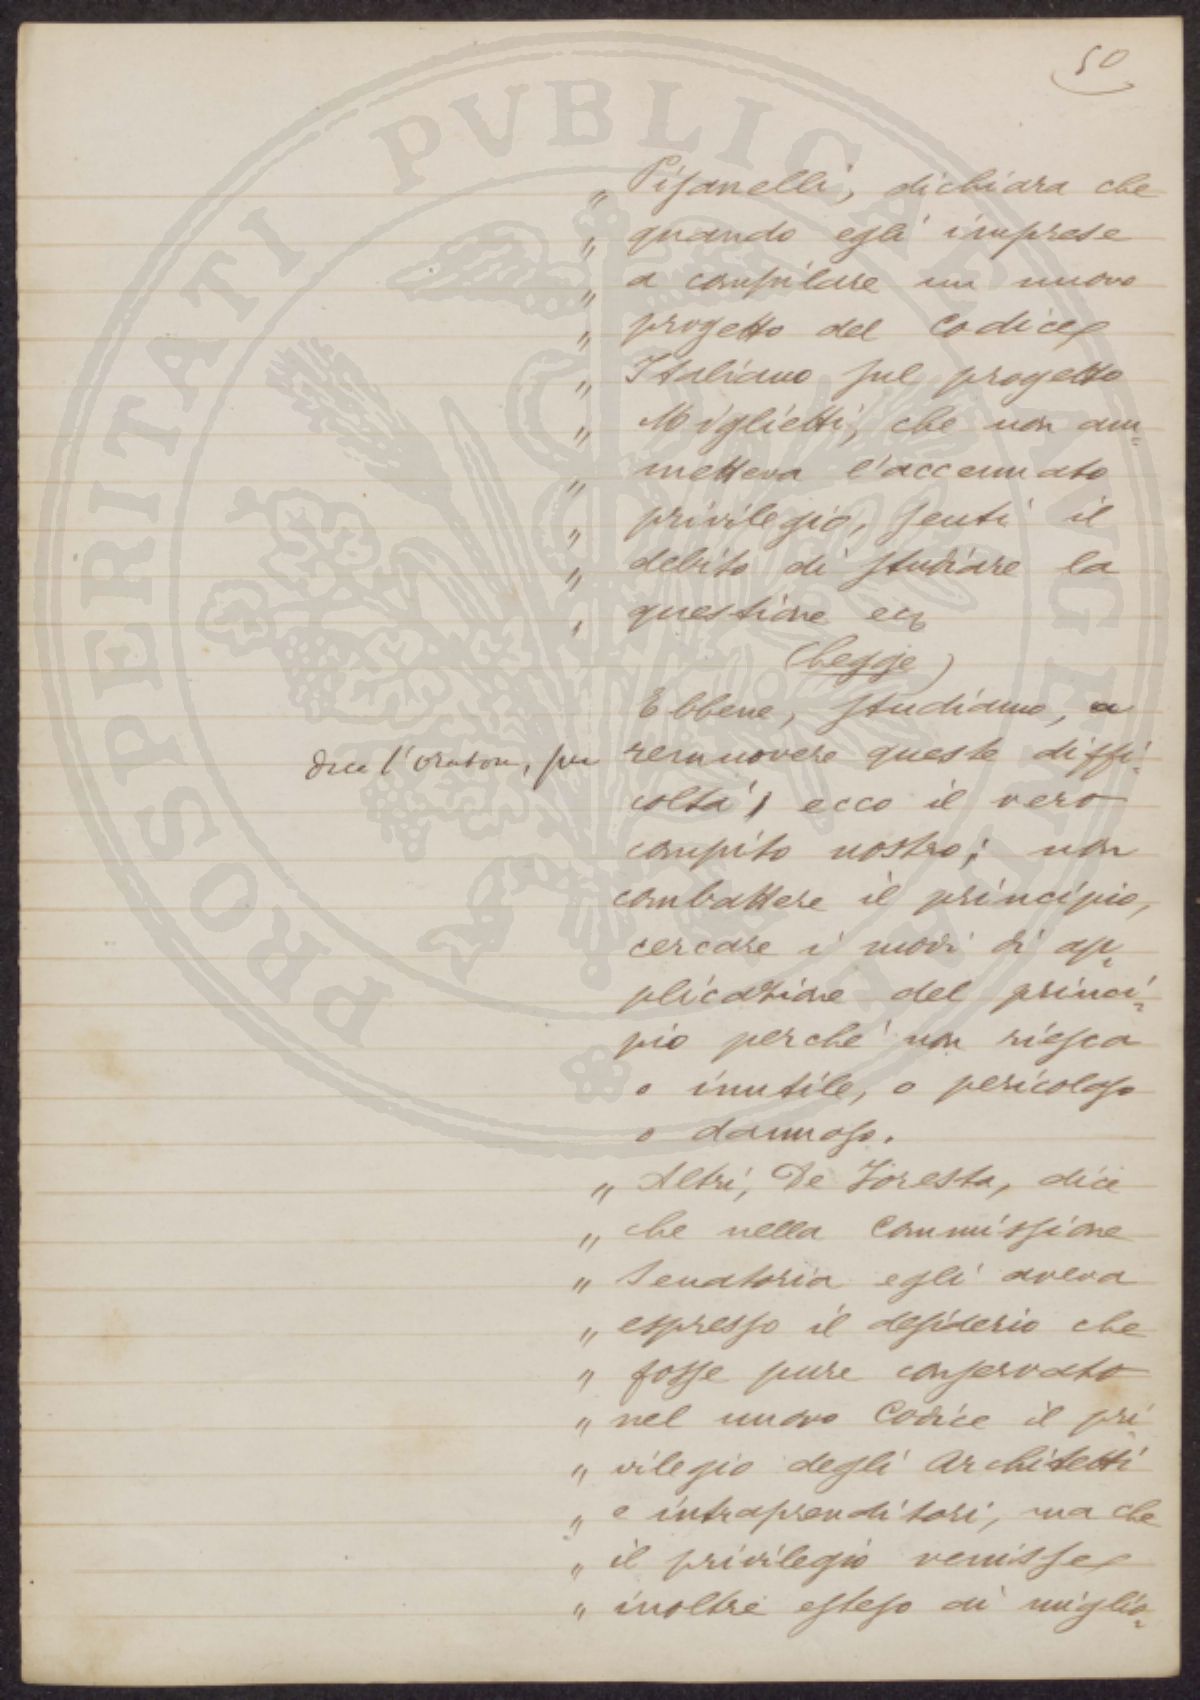 50
„ Pisanelli, dichiara che
„ quando egli imprese
„ a compilare un nuovo
„ progetto del Codice
„ Italiano sul progetto
„ Miglietti, che non am-
„ metteva l'accennato
„ privilegio, sentì il
„ debito di studiare la
„ questione ecc
(Legge)
Ebbene, studiamo, a
dice l'oratore, per
remuovere queste diffi-
coltà, ecco il vero
compito nostro; non
combattere il principio,
cercare i modi di ap-
plicazione del princi-
pio perché non riesca
o inutile, o pericoloso
o dannoso.
„ Altri, De Foresta, dice
„ che nella Commissione
„ Senatoria egli aveva
„ espresso il desiderio che
„ fosse pure conservato
„ nel nuovo Codice il pri-
„ vilegio degli Architetti
„ e intraprenditori, ma che
„ il privilegio venisse
„ inoltre esteso ai miglio-
PROSPERITATI PVBLICAE AVGENDAE